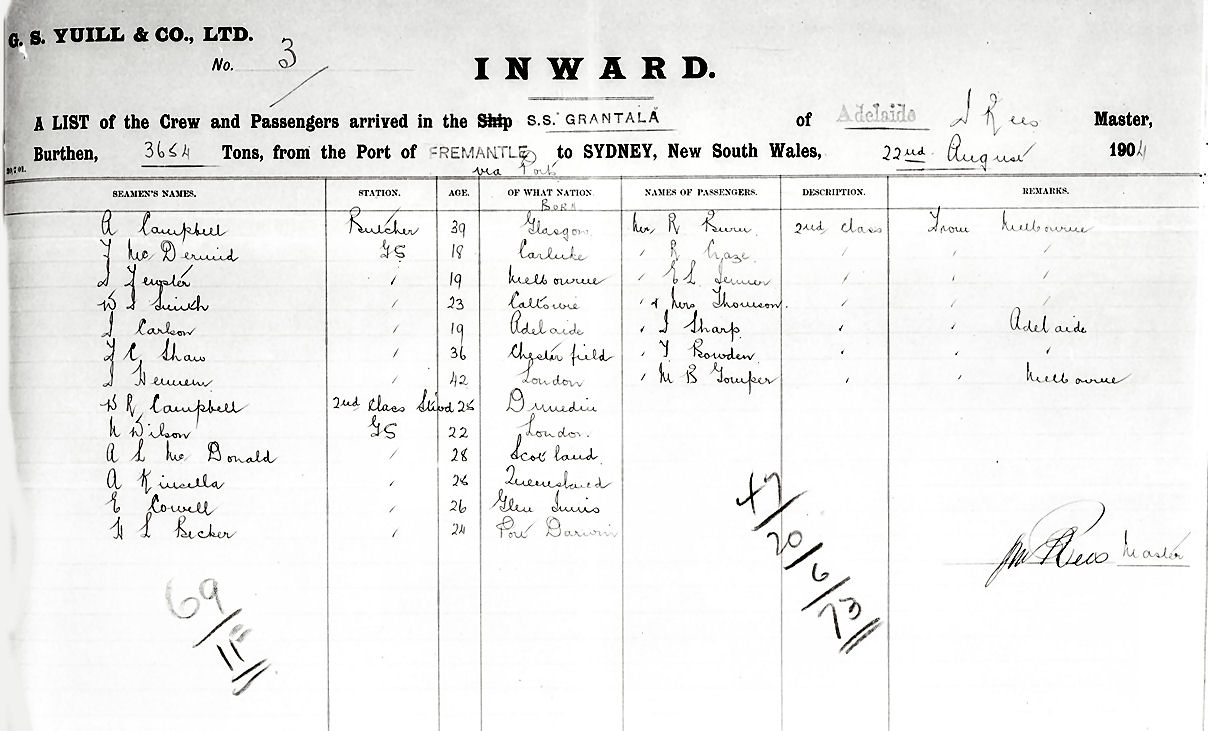 G. S. YUILL & CO., LTD.
No. 3
INWARD.
A LIST of the Crew and Passengers arrived in the Ship S.S. GRANTALA of Adelaide J Rees Master,
Burthen, 3654 Tons, from the Port of FREMANTLE to SYDNEY, New South Wales, 22nd August 1904
via Ports
SEAMEN'S NAMES. STATION. AGE. OF WHAT NATION. NAMES OF PASSENGERS. DESCRIPTION. REMARKS.
BORN
A Campbell Butcher 39 Glasgow Mr R 2nd class From Melbourne
Mc Dermid GS 18 Carluke " R Craze " " "
" 19 Melbourne " E L " " "
W S Smith " 23 " & Mrs Thomson. " " "
J Carlson " 19 Adelaide " J Sharp " " Adelaide
C Shaw " 36 Chesterfield " Bowden " " "
" 42 London " M B " " Melbourne
W R Campbell 2nd Class Stwd Dunedin
N Wilson GS 22 London.
A L Mc Donald " 28 Scotland
A Kinsella " Queensland
E Cowell " 26 Glen Innis
H L Becker " 24 Port Darwin
Rees Master
47/20/6/73
69/